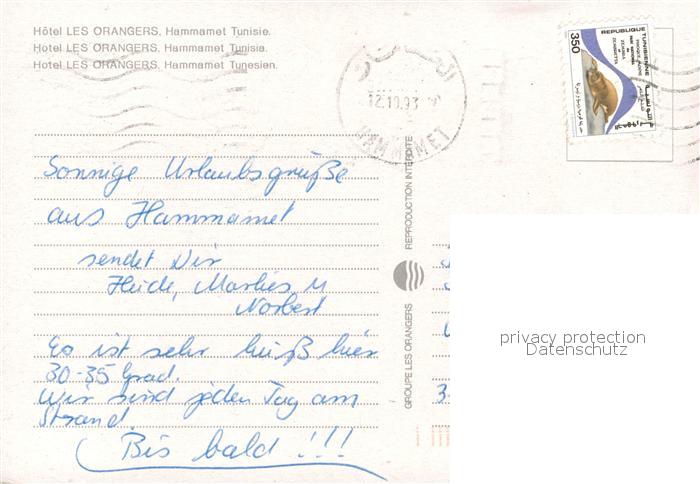 Hôtel LES ORANGERS, Hammamet Tunisie.
Hotel LES ORANGERS, Hammamet Tunisia.
Hotel LES ORANGERS, Hammamet Tunesien.
12.10.93
HAMMAMET
350
REPUBLIQUE TUNISIENNE
Sonnige Urlaubsgrüße
aus Hammamet
sendet Dir
Heide, Marlies u
Norbert
Es ist sehr heiß hier
30-35 Grad.
Wir sind jeden Tag am
Strand.
Bis bald !!!
REPRODUCTION INTERDITE
GROUPE LES ORANGERS
privacy protection
Datenschutz